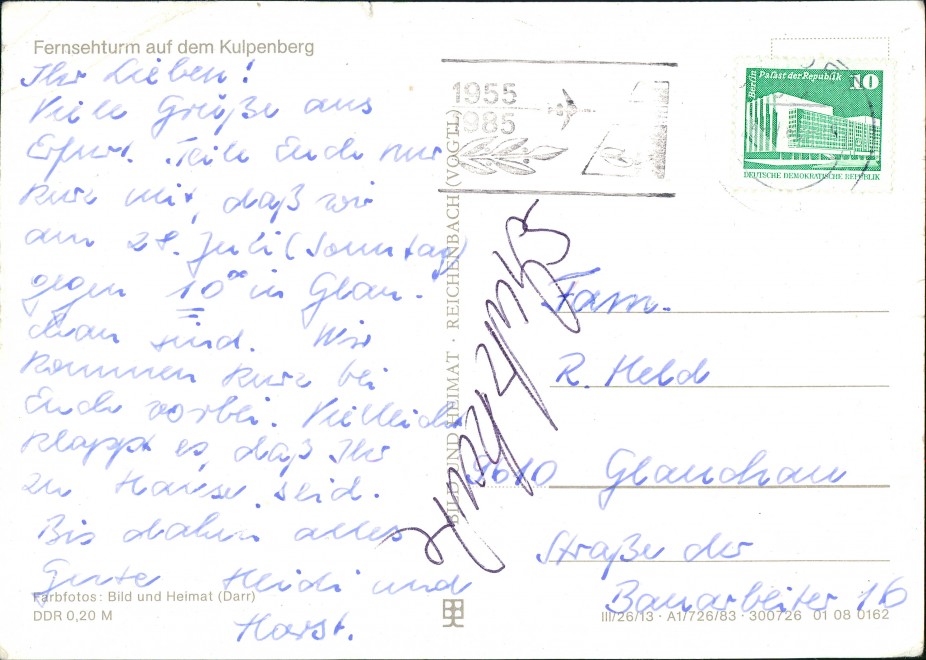 Fernsehturm auf dem Kulpenberg
Ihr Lieben!
Viele Grüße aus
Erfurt. Teile Euch nur
kurz mit, daß wir
am 28. Juli (Sonntag)
gegen 10⁰⁰ in Glau-
chau sind. Wir
kommen kurz bei
Euch vorbei. Vielleicht
klappt es, daß Ihr
zu Hause seid.
Bis dahin alles
Gute Heidi und
Horst.
Farbfotos: Bild und Heimat (Darr)
DDR 0,20 M
BILD UND HEIMAT · REICHENBACH (VOGTL)
1955
1985
Berlin Palast der Republik 10
DEUTSCHE DEMOKRATISCHE REPUBLIK
Fam.
R. Held
9610 Glauchau
Straße der
Bauarbeiter 16
III/26/13 · A1/726/83 · 300726 01 08 0162